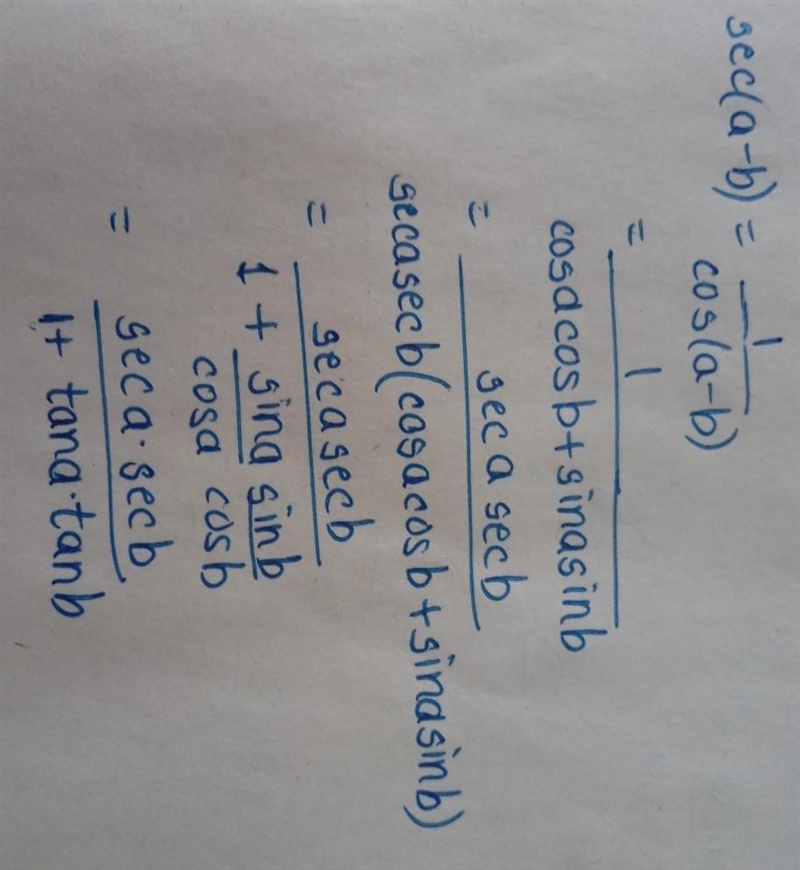 sec(a-b) = 1
cos(a-b)
= 1
cosacosb+sinasinb
= seca secb
secasecb(cosacosb+sinasinb)
= secasecb
1 + sina sinb
cosa cosb
= seca·secb
1+ tana·tanb